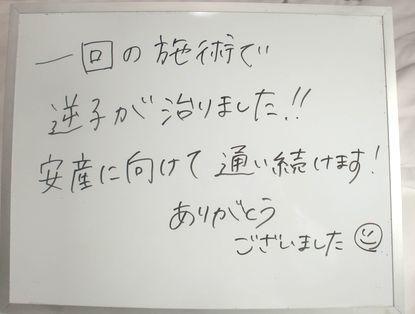 一回の施術で
逆子が治りました!!
安産に向けて通い続けます!
ありがとう
ございました